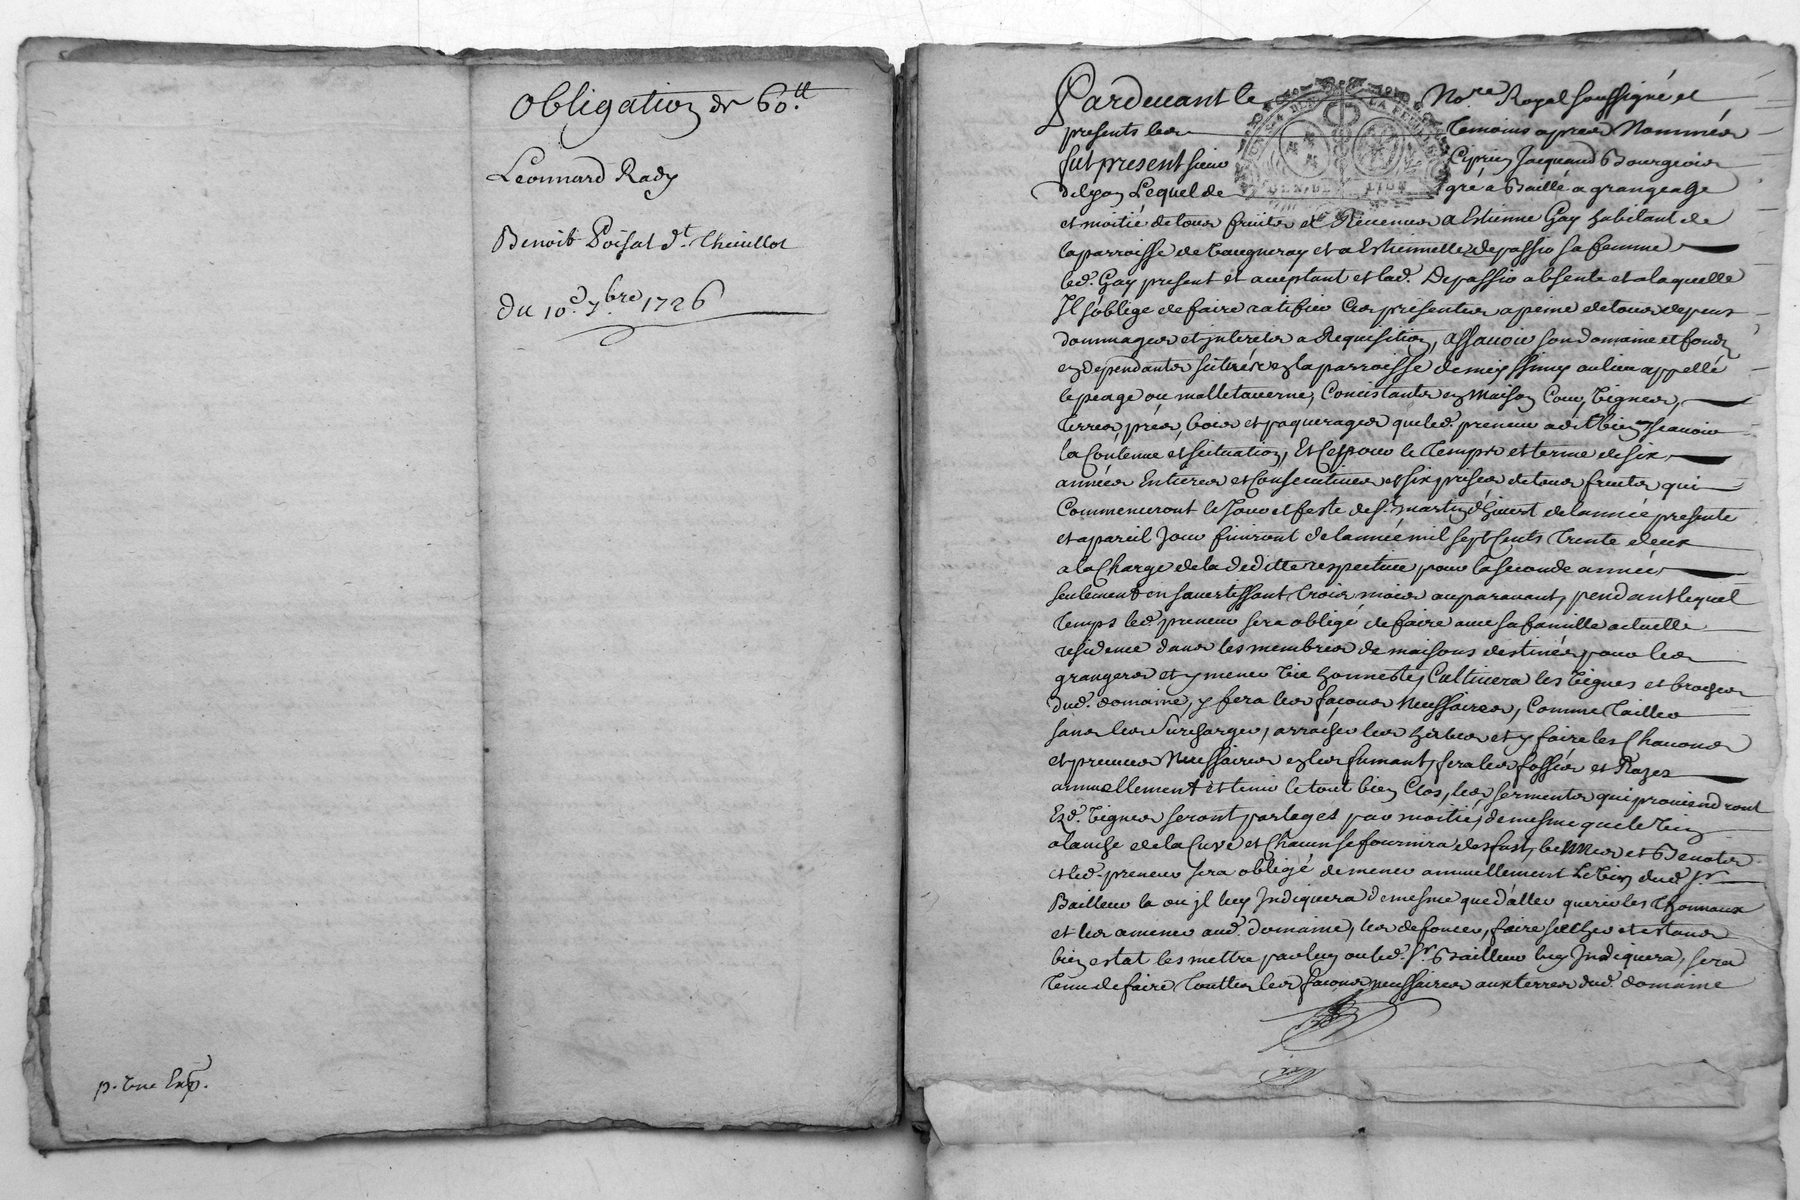 Obligation de 60.tt
Leonnard Rady
Benoit Poisat d.t Thevillot
du 10.e 7.bre 1726
p. Une Exp.
Pardevant le No.re Royal soussigné et
presents les Temoins apres Nommés
fut present sieur Ciprien Jacquand Bourgeois
de lyon Lequel de gré a Baillé a grangeage
et moitié de tous fruits et Revenus a Estienne Gay habitant de
la parroisse de Vaugneray et a Estiennette depassio sa femme
led. Gay present et acceptant et lad. Depassio absente et a laquelle
Il s'oblige de faire ratifier Ces presentes a peine de tous depens
dommages et jnterets a Requisition, assavoir son domaine et fonds
en dependants scitués en la parroisse de meyssimy au lieu appellé
le peage ou malletaverne, Concistants en Maison Cour, Vignes,
Terres, prés, bois et paquerages que led. preneur a dit bien scavoir
la Contenue et scituation, Et Ce pour le Temps et terme de six
années Entieres et Consecutives et six prises de tous fruits qui
Commenceront le Jour et feste de S.t martin d'hivert de lannée presente
et a pareil Jour finiront de lannée mil sept Cents Trente deux
a la Charge de la deditte respective pour la seconde année
seulement en s'avertissant Trois mois auparavant, pendant lequel
Temps led. preneur sera obligé de faire avec sa famille actuelle
residence dans les membres de maisons destinés pour les
grangers et y mener Vie honneste, Cultivera les Vignes et broches
dud. domaine, y fera les façons Necessaires, Comme Tailler
sans les Surcharger, arracher les herbes et y faire les Chavons
et preuves Necessaires en les fumant, fera les fossés et Razes
annuellement et tenir le tout bien Clos, les serments qui proviendront
Esd. Vignes seront partages par moitié, de mesme que le Vin
a lanche de la Cuve et Chacun se fournira des fust, bennes et Benots
et led. preneur sera obligé de mener annuellement Le Vin dud. S.r
Bailleur la ou jl luy Jndiquera de mesme que d'aller querir les Thonneaux
et les amener aud. domaine, les defoncer, faire seicher et estans
bien estat les mettre par luy ou led. S.r Bailleur luy Jndiquera, sera
Tenu de faire Touttes les façons necessaires aux terres dud. domaine